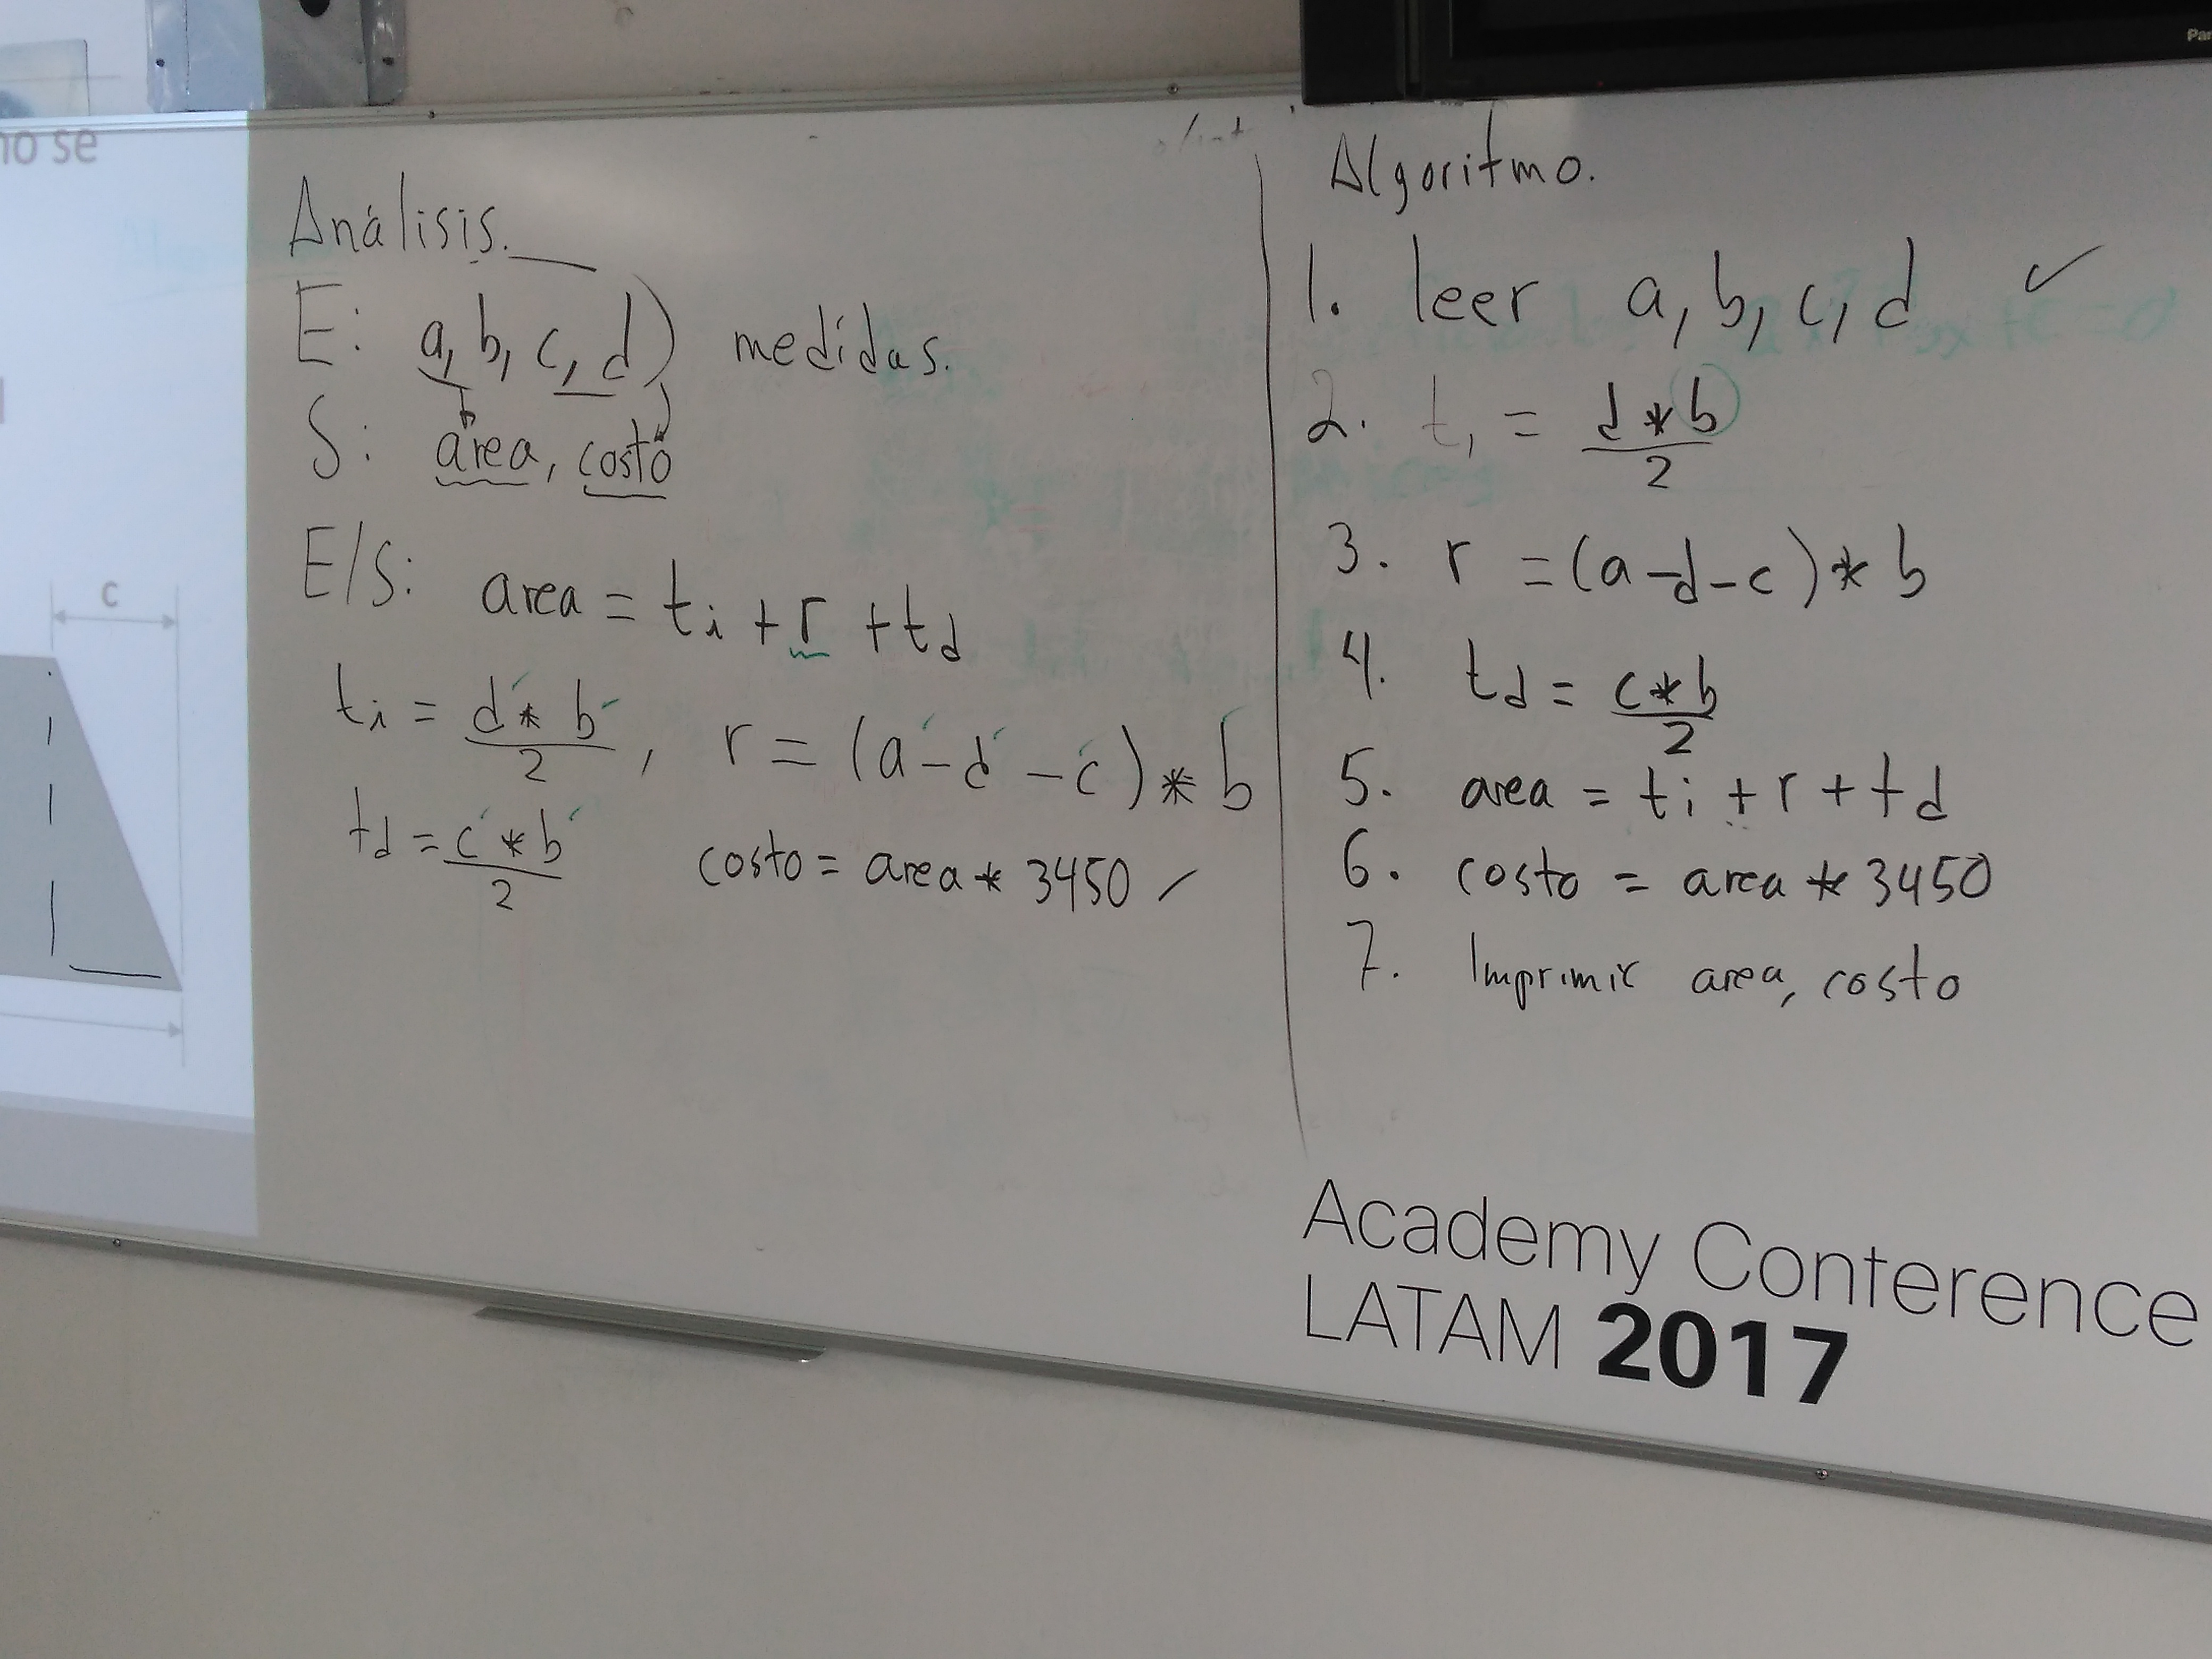 no se
c
Análisis.
E: a, b, c, d) medidas.
S: area, costo
E/S: area = ti + r + td
ti = d * b / 2 , r = (a - d - c) * b
td = c * b / 2 costo = area * 3450
Algoritmo.
1. leer a, b, c, d ✓
2. ti = d * b / 2
3. r = (a - d - c) * b
4. td = c * b / 2
5. area = ti + r + td
6. costo = area * 3450
7. Imprimir area, costo
Academy Conference
LATAM 2017